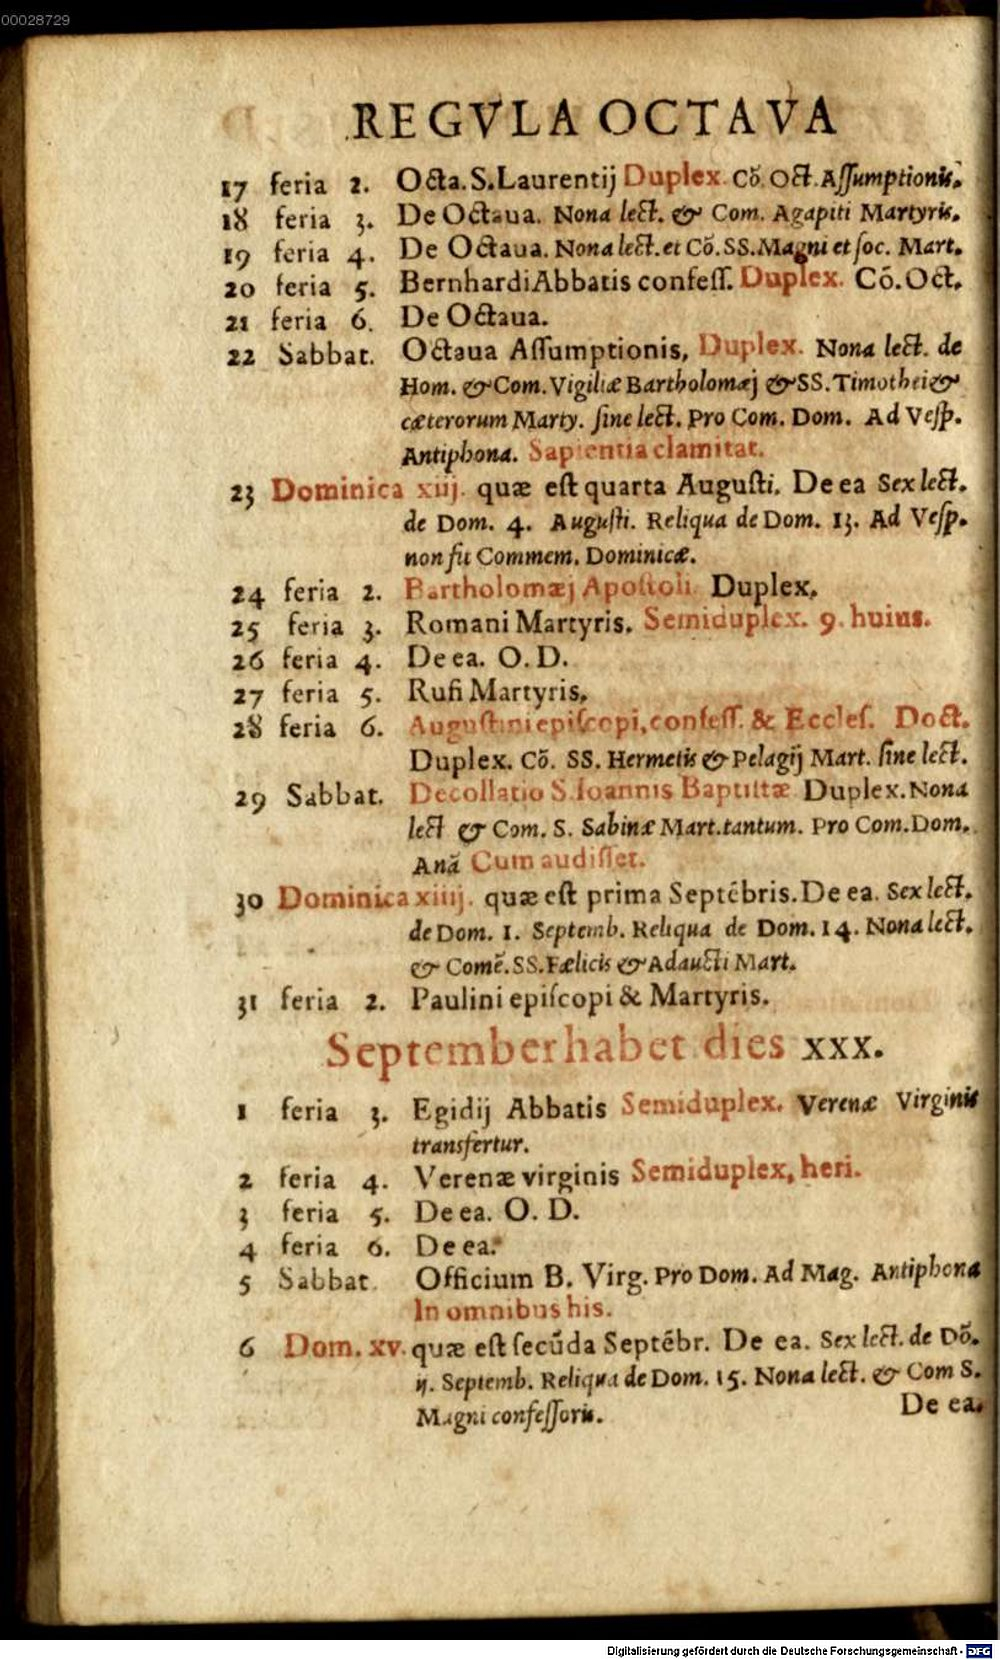 00028729
REGVLA OCTAVA
17 feria 2. Octa. S. Laurentij Duplex. Cõ. Oct. Aſſumptionis.
18 feria 3. De Octaua. Nona lect. & Com. Agapiti Martyris.
19 feria 4. De Octaua. Nona lect. et Cõ. SS. Magni et ſoc. Mart.
20 feria 5. Bernhardi Abbatis confeſſ. Duplex. Cõ. Oct.
21 feria 6. De Octaua.
22 Sabbat. Octaua Aſſumptionis, Duplex. Nona lect. de
Hom. & Com. Vigiliæ Bartholomæj & SS. Timothei &
cæterorum Marty. ſine lect. Pro Com. Dom. Ad Veſp.
Antiphona. Sapientia clamitat.
23 Dominica xiij. quæ eſt quarta Auguſti. De ea Sex lect.
de Dom. 4. Auguſti. Reliqua de Dom. 13. Ad Veſp.
non fit Commem. Dominicæ.
24 feria 2. Bartholomæj Apoſtoli Duplex.
25 feria 3. Romani Martyris. Semiduplex. 9. huius.
26 feria 4. De ea. O. D.
27 feria 5. Rufi Martyris.
28 feria 6. Auguſtini epiſcopi, confeſſ. & Eccleſ. Doct.
Duplex. Cõ. SS. Hermetis & Pelagij Mart. ſine lect.
29 Sabbat. Decollatio S. Ioannis Baptiſtæ Duplex. Nona
lect & Com. S. Sabinæ Mart. tantum. Pro Com. Dom.
Anã Cum audiſſet.
30 Dominica xiiij. quæ eſt prima Septẽbris. De ea. Sex lect.
de Dom. 1. Septemb. Reliqua de Dom. 14. Nona lect.
& Comẽ. SS. Fælicis & Adaucti Mart.
31 feria 2. Paulini epiſcopi & Martyris.
September habet dies xxx.
1 feria 3. Egidij Abbatis Semiduplex. Verenæ Virginis
transfertur.
2 feria 4. Verenæ virginis Semiduplex, heri.
3 feria 5. De ea. O. D.
4 feria 6. De ea.
5 Sabbat. Officium B. Virg. Pro Dom. Ad Mag. Antiphona
In omnibus his.
6 Dom. xv. quæ eſt ſecũda Septẽbr. De ea. Sex lect. de Dõ.
ij. Septemb. Reliqua de Dom. 15. Nona lect. & Com S.
Magni confeſſoris.
De ea.
Digitalisierung gefördert durch die Deutsche Forschungsgemeinschaft - DFG